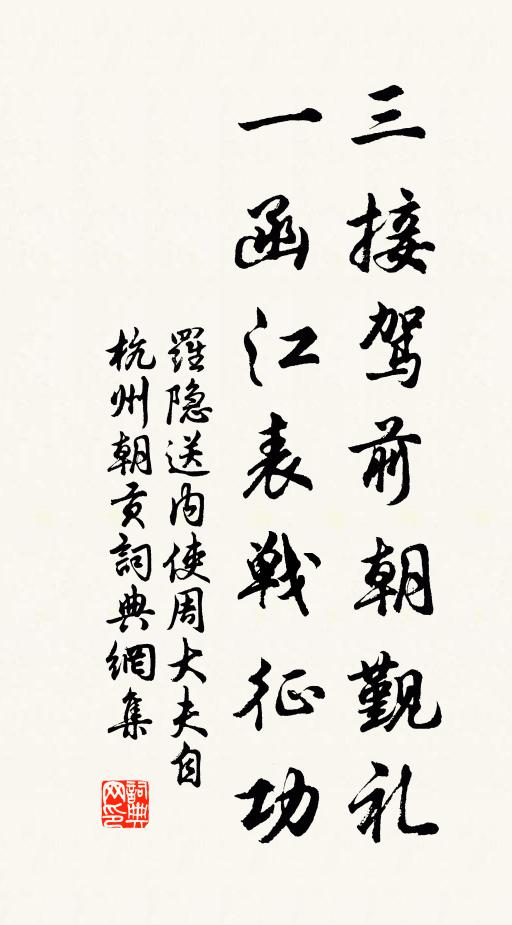 三接驾前朝觐礼
一函江表戦征功
羅隐送内使周大夫自
杭州朝贡詞典網集
詞典
网印